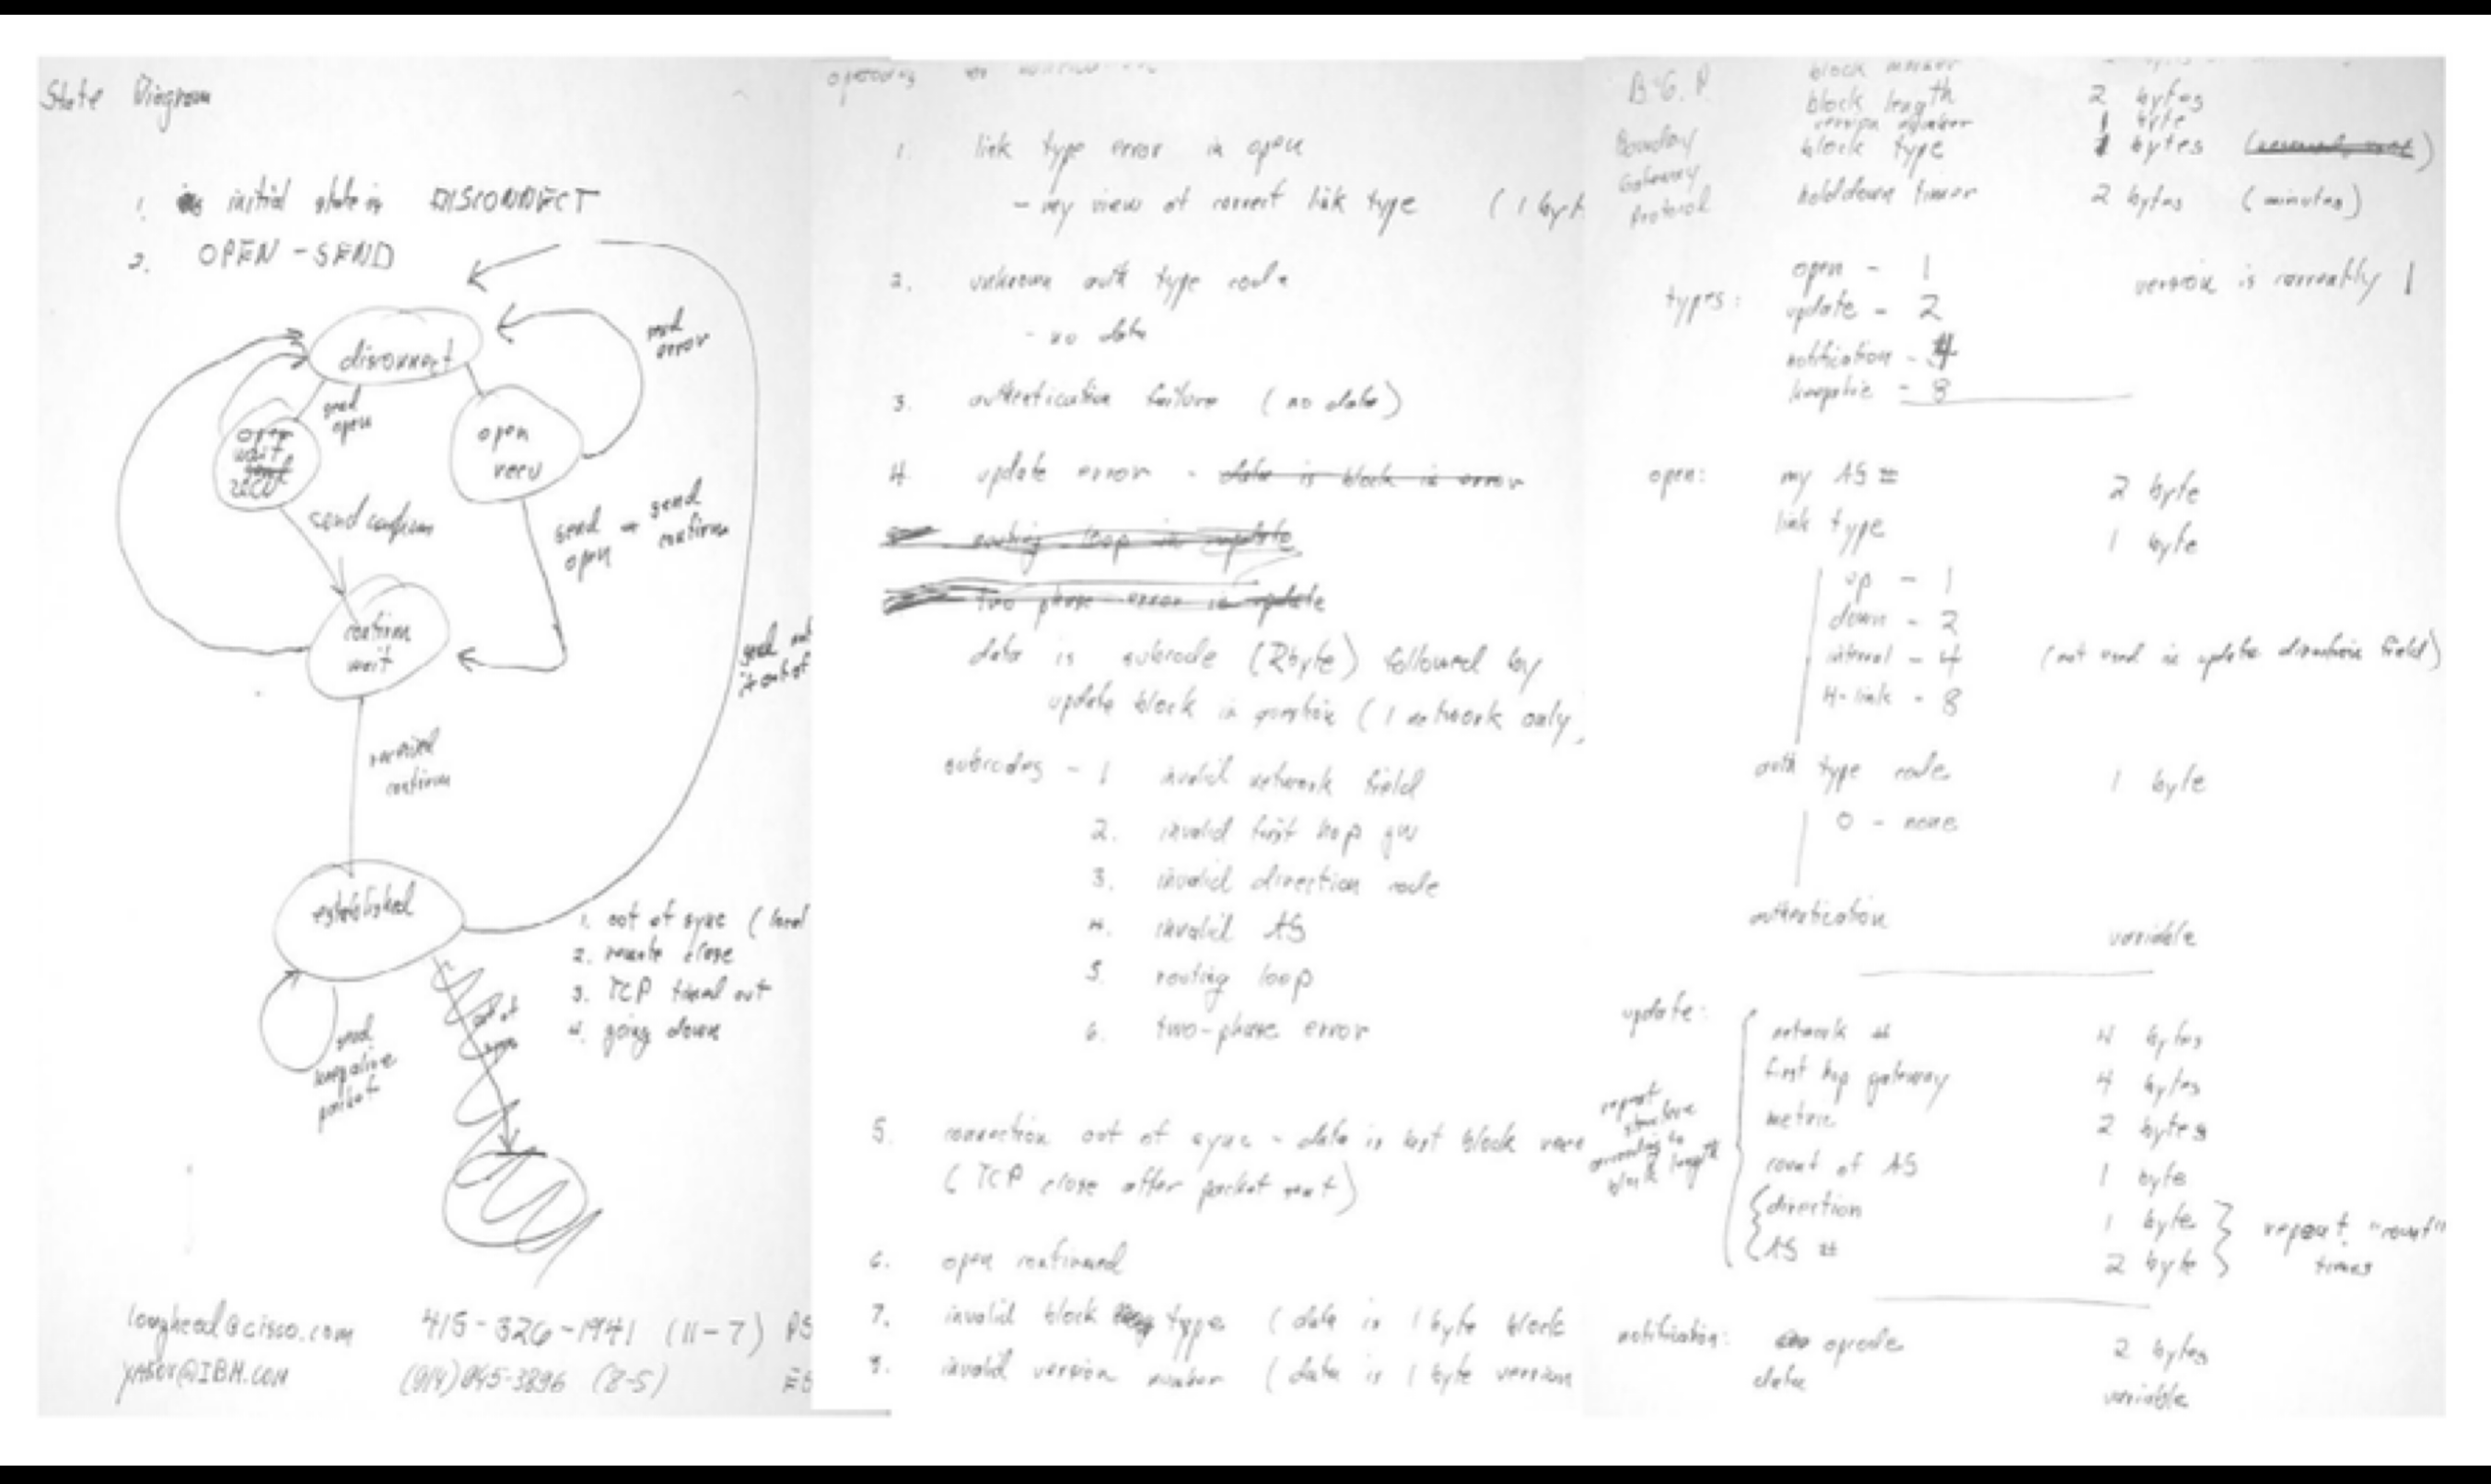 State Diagram
1. initial state is DISCONNECT
2. OPEN - SEND
disconnect
send error
send open
open
wait
recv
open
recv
send confirm
send open
send confirm
confirm
wait
received
confirm
established
1. out of sync (local
2. remote close
3. TCP timed out
4. going down
send
keepalive
packet
out of sync
lougheed@cisco.com 415-326-1941 (11-7) PS
yakov@IBM.COM (914) 945-3896 (8-5) ES
opcodes
1. link type error in open
- my view of correct link type (1 byt
2. unknown auth type code
- no data
3. authentication failure (no data)
4. update error - data is block in error
routing loop in update
two phase error in update
data is subcode (2byte) followed by
update block in question (1 network only,
subcodes - 1 invalid network field
2. invalid first hop gw
3. invalid direction code
4. invalid AS
5. routing loop
6. two-phase error
5. connection out of sync - data is last block
(TCP close after packet sent)
6. open confirmed
7. invalid block types (data is 1 byte block
8. invalid version number (data is 1 byte version
B.G.P.
Boundary
Gateway
Protocol
block marker
block length 2 bytes
version number 1 byte
block type 1 bytes
holddown timer 2 bytes (minutes)
types: open - 1 version is currently 1
update - 2
notification - 4
keepalive - 8
open: my AS # 2 byte
link type 1 byte
up - 1
down - 2
internal - 4 (not used in update direction field)
H-link - 8
auth type code 1 byte
0 - none
authentication variable
update:
network # 4 bytes
first hop gateway 4 bytes
metric 2 bytes
count of AS 1 byte
direction 1 byte
AS # 2 byte
repeat "count"
times
repeat
structure
according to
block length
notification: opcode 2 bytes
data variable